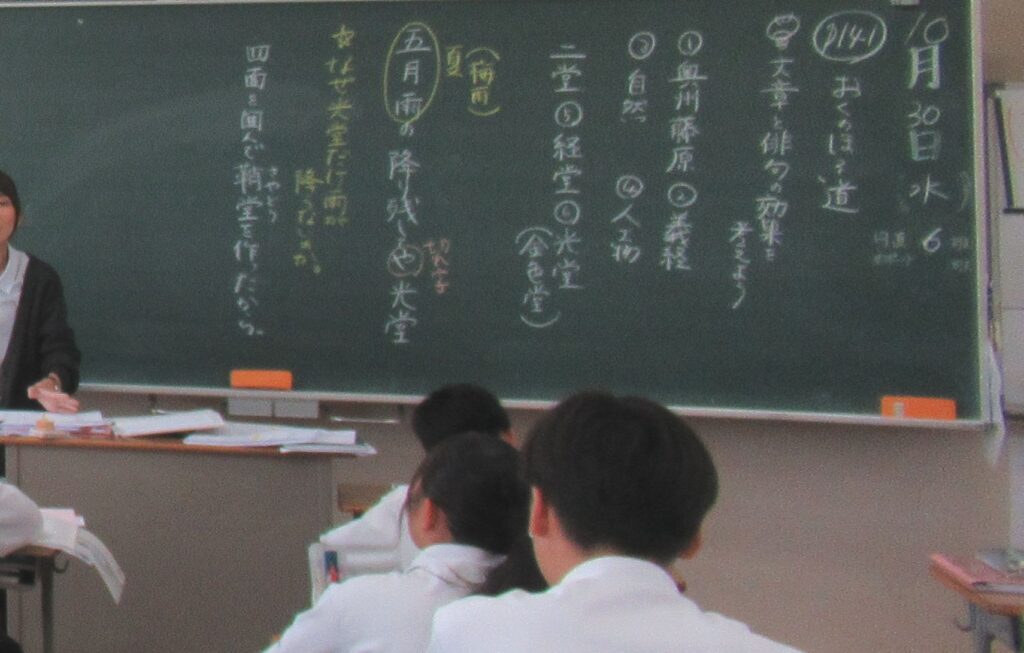 10月30日水 6
p141 おくのほそ道
文章と俳句の効果を
考えよう
①奥州藤原 ②義経
③自然 ④人工物
二堂 ⑤経堂 ⑥光堂
(金色堂)
(梅雨)
夏
切れ字
五月雨の降り残してや光堂
☆なぜ光堂だけ雨が
降らないのか。
さやどう
四面を囲んで鞘堂を作ったから。